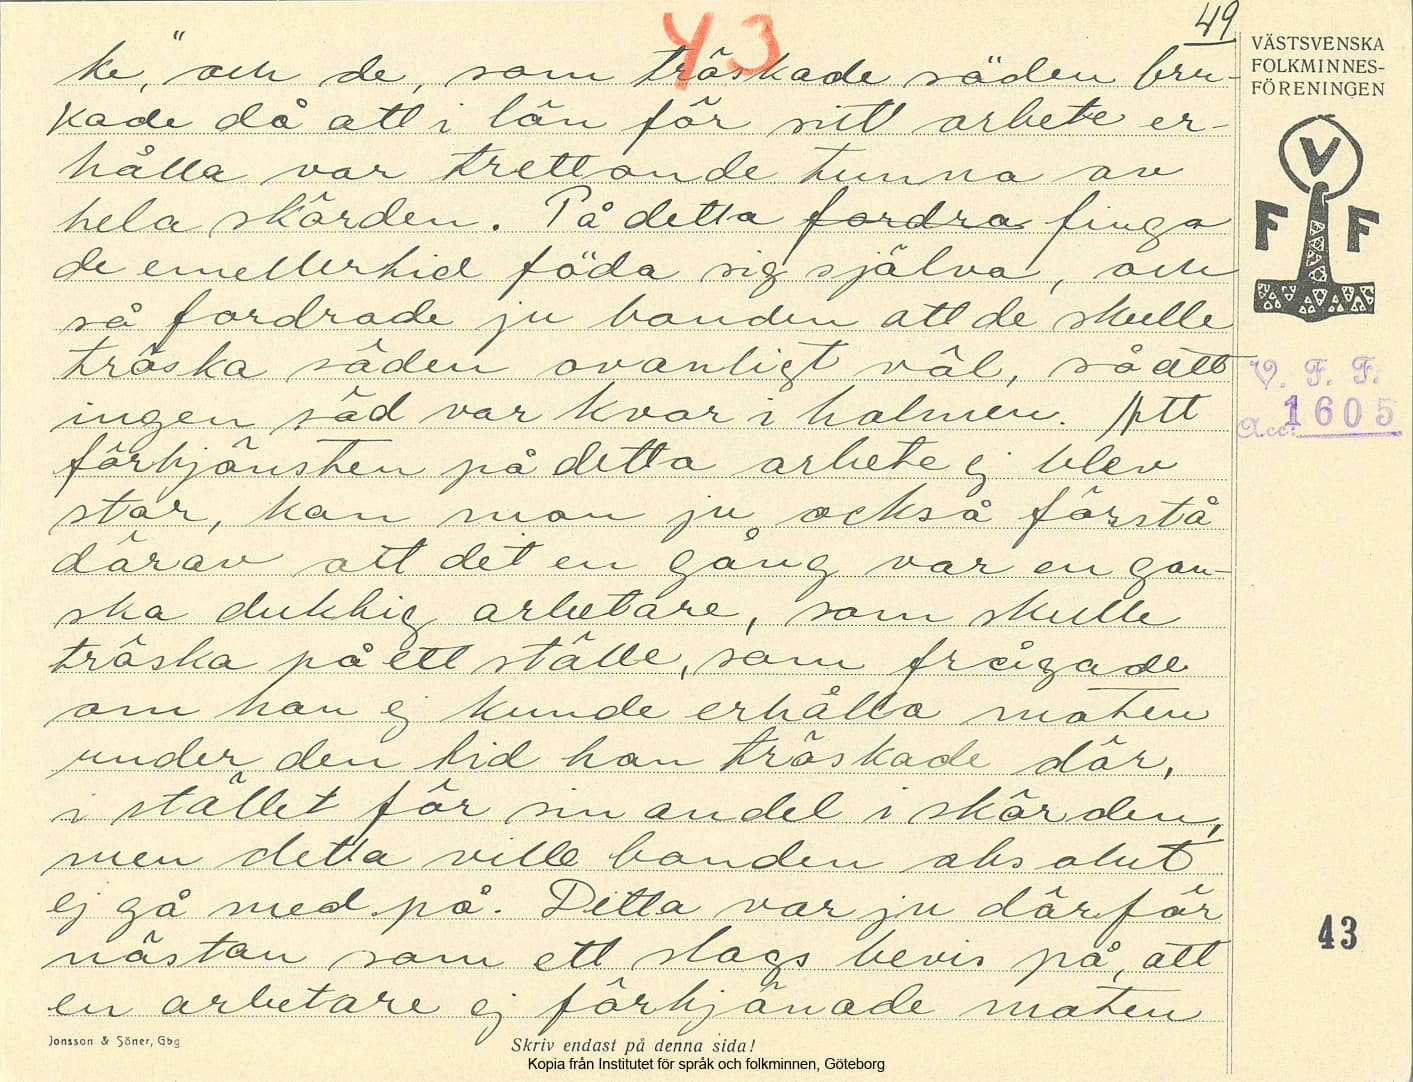 43
49
ke," och de, som tröskade säden bru-
kade då att i lön för sitt arbete er-
hålla var trettonde tunna av
hela skörden. På detta fordra fingo
de emellertid föda sig själva, och
så fordrade ju bonden att de skulle
tröska säden ovanligt väl, så att
ingen säd var kvar i halmen. Att
förtjänsten på detta arbete ej blev
stor, kan man ju också förstå
därav att det en gång var en gan-
ska duktig arbetare, som skulle
tröska på ett ställe, som frågade
om han ej kunde erhålla maten
under den tid han tröskade där,
i stället för sin andel i skörden,
men detta ville bonden absolut
ej gå med på. Detta var ju därför
nästan som ett slags bevis på, att
en arbetare ej förtjänade maten
VÄSTSVENSKA
FOLKMINNES-
FÖRENINGEN
V
F F
V. F. F.
Acc. 1605
43
Jonsson & Söner, Gbg
Skriv endast på denna sida!
Kopia från Institutet för språk och folkminnen, Göteborg